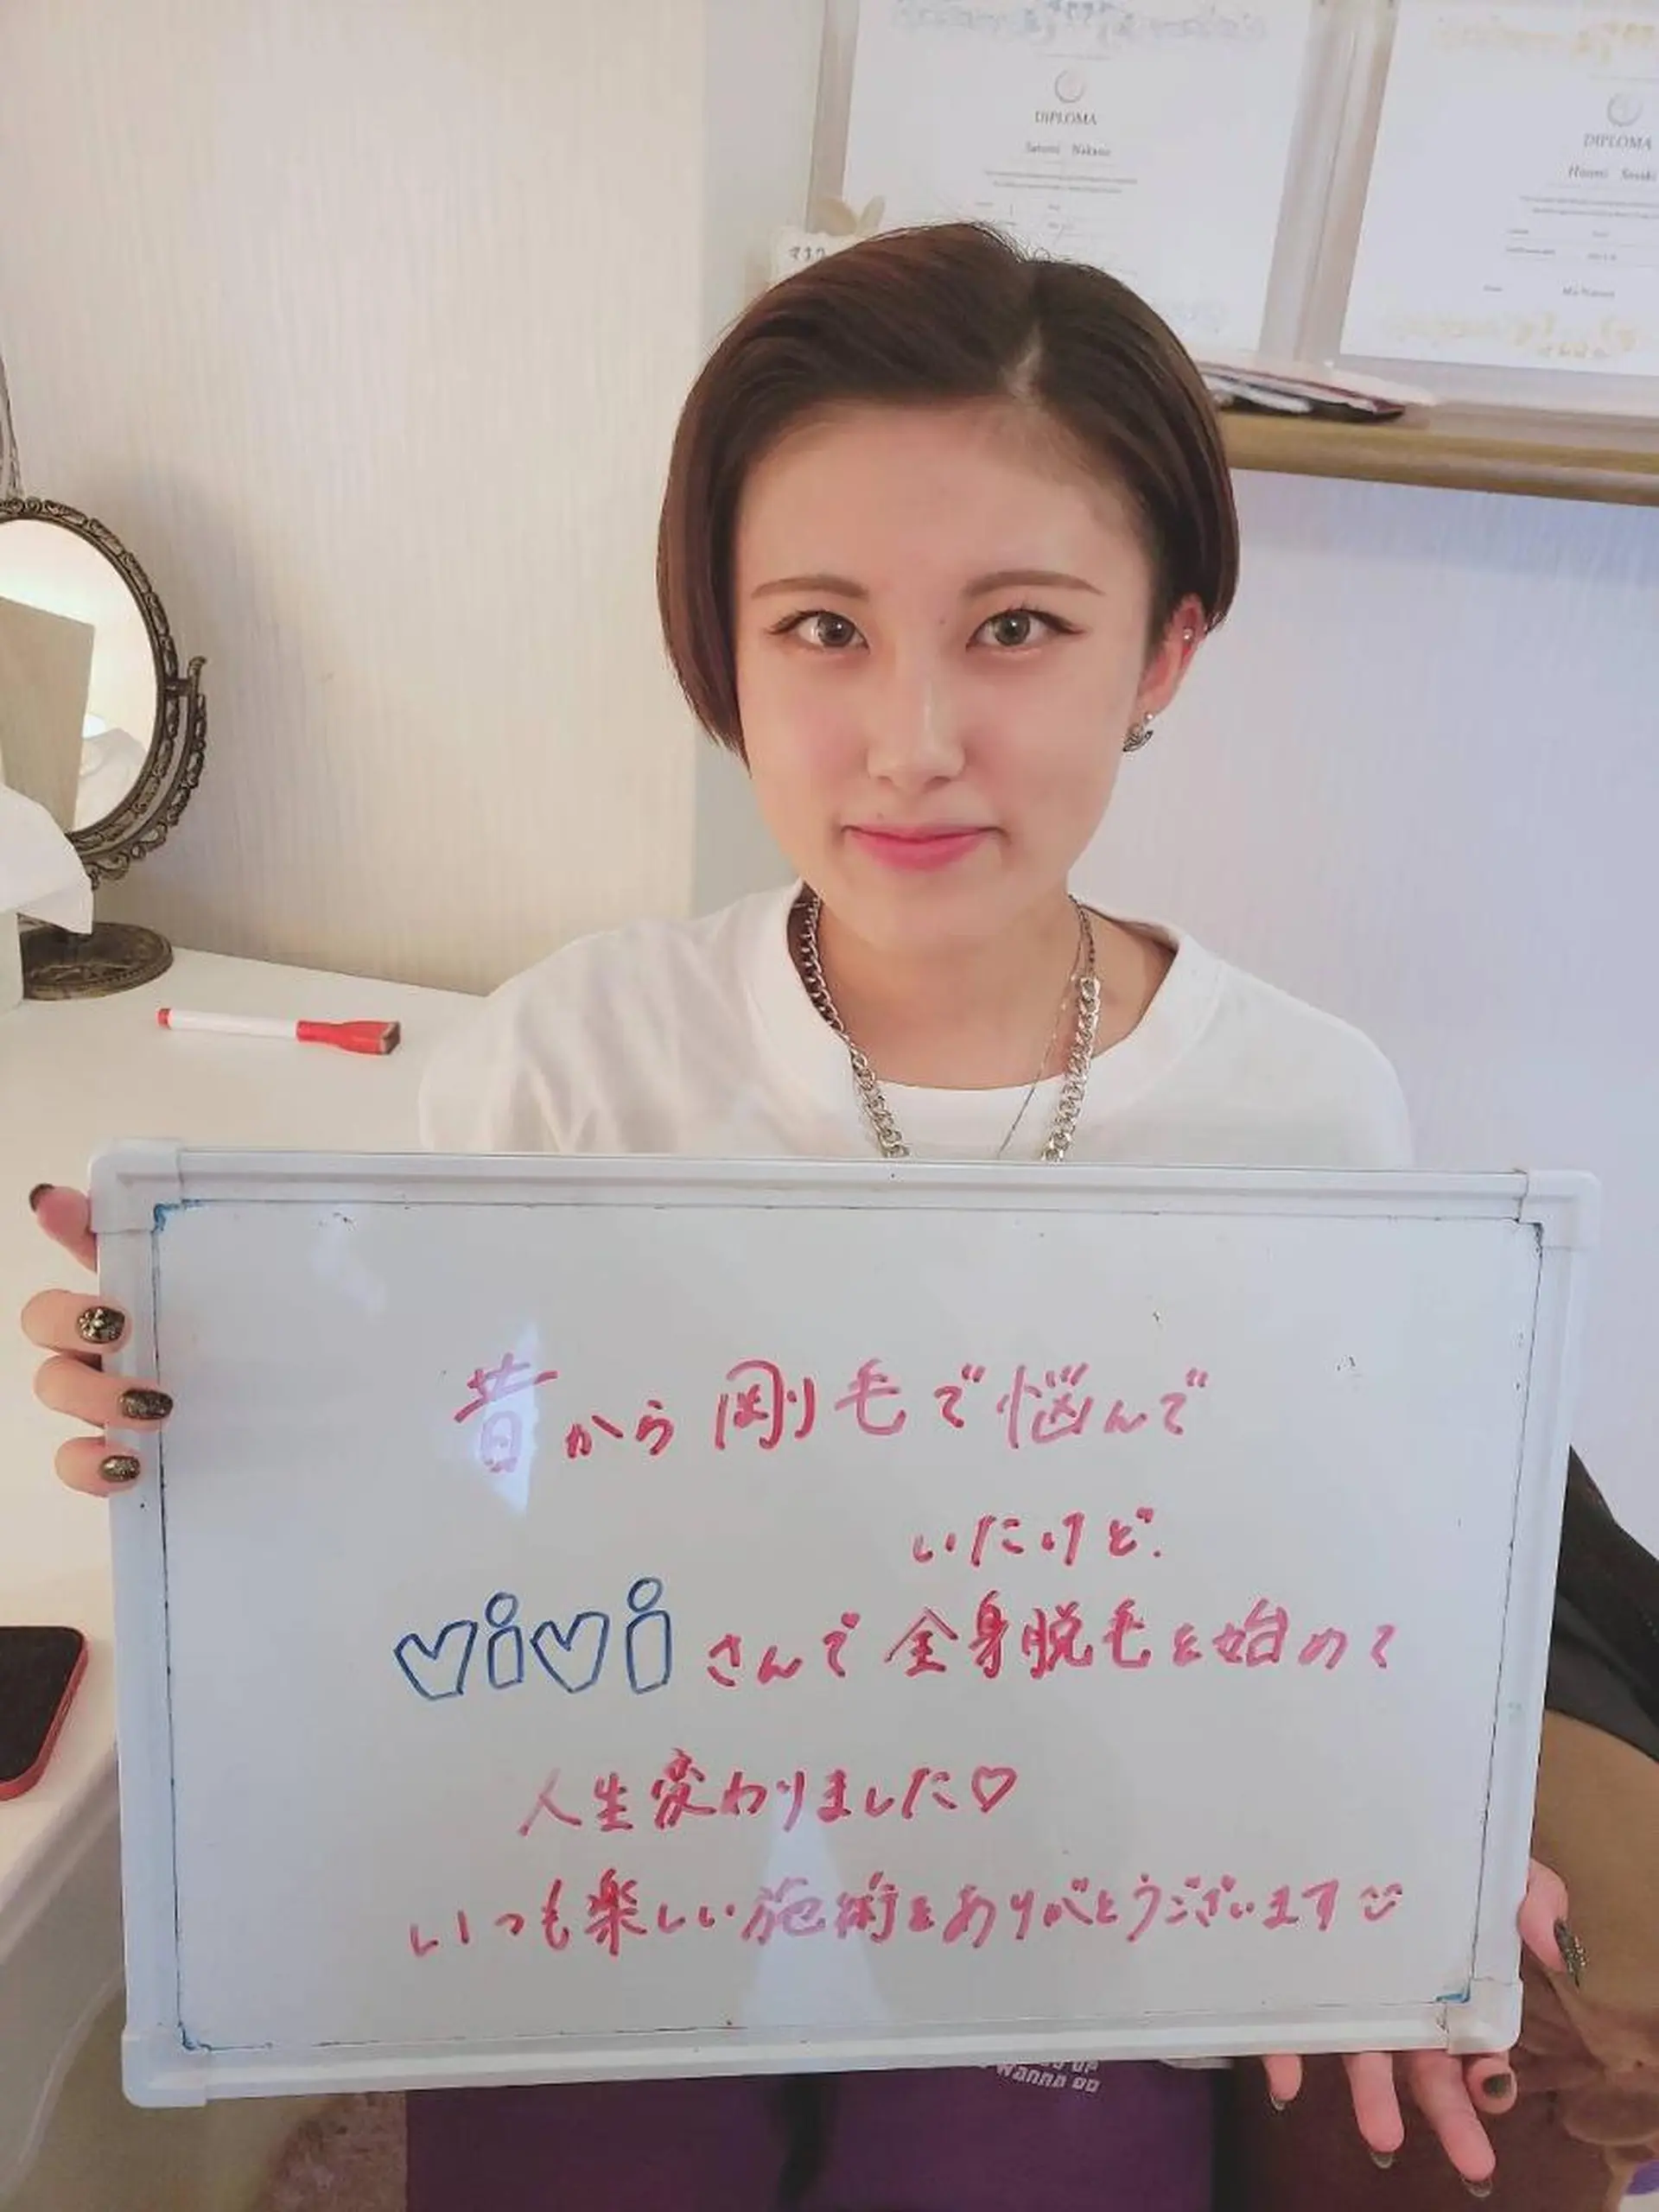 DIPLOMA
Satomi Nakano
DIPLOMA
Hitomi Sasaki
昔から剛毛で悩んで
いたけど.
ViViさんで全身脱毛を始めて
人生変わりました♡
いつも楽しい施術をありがとうございます
UP
WANNA DO